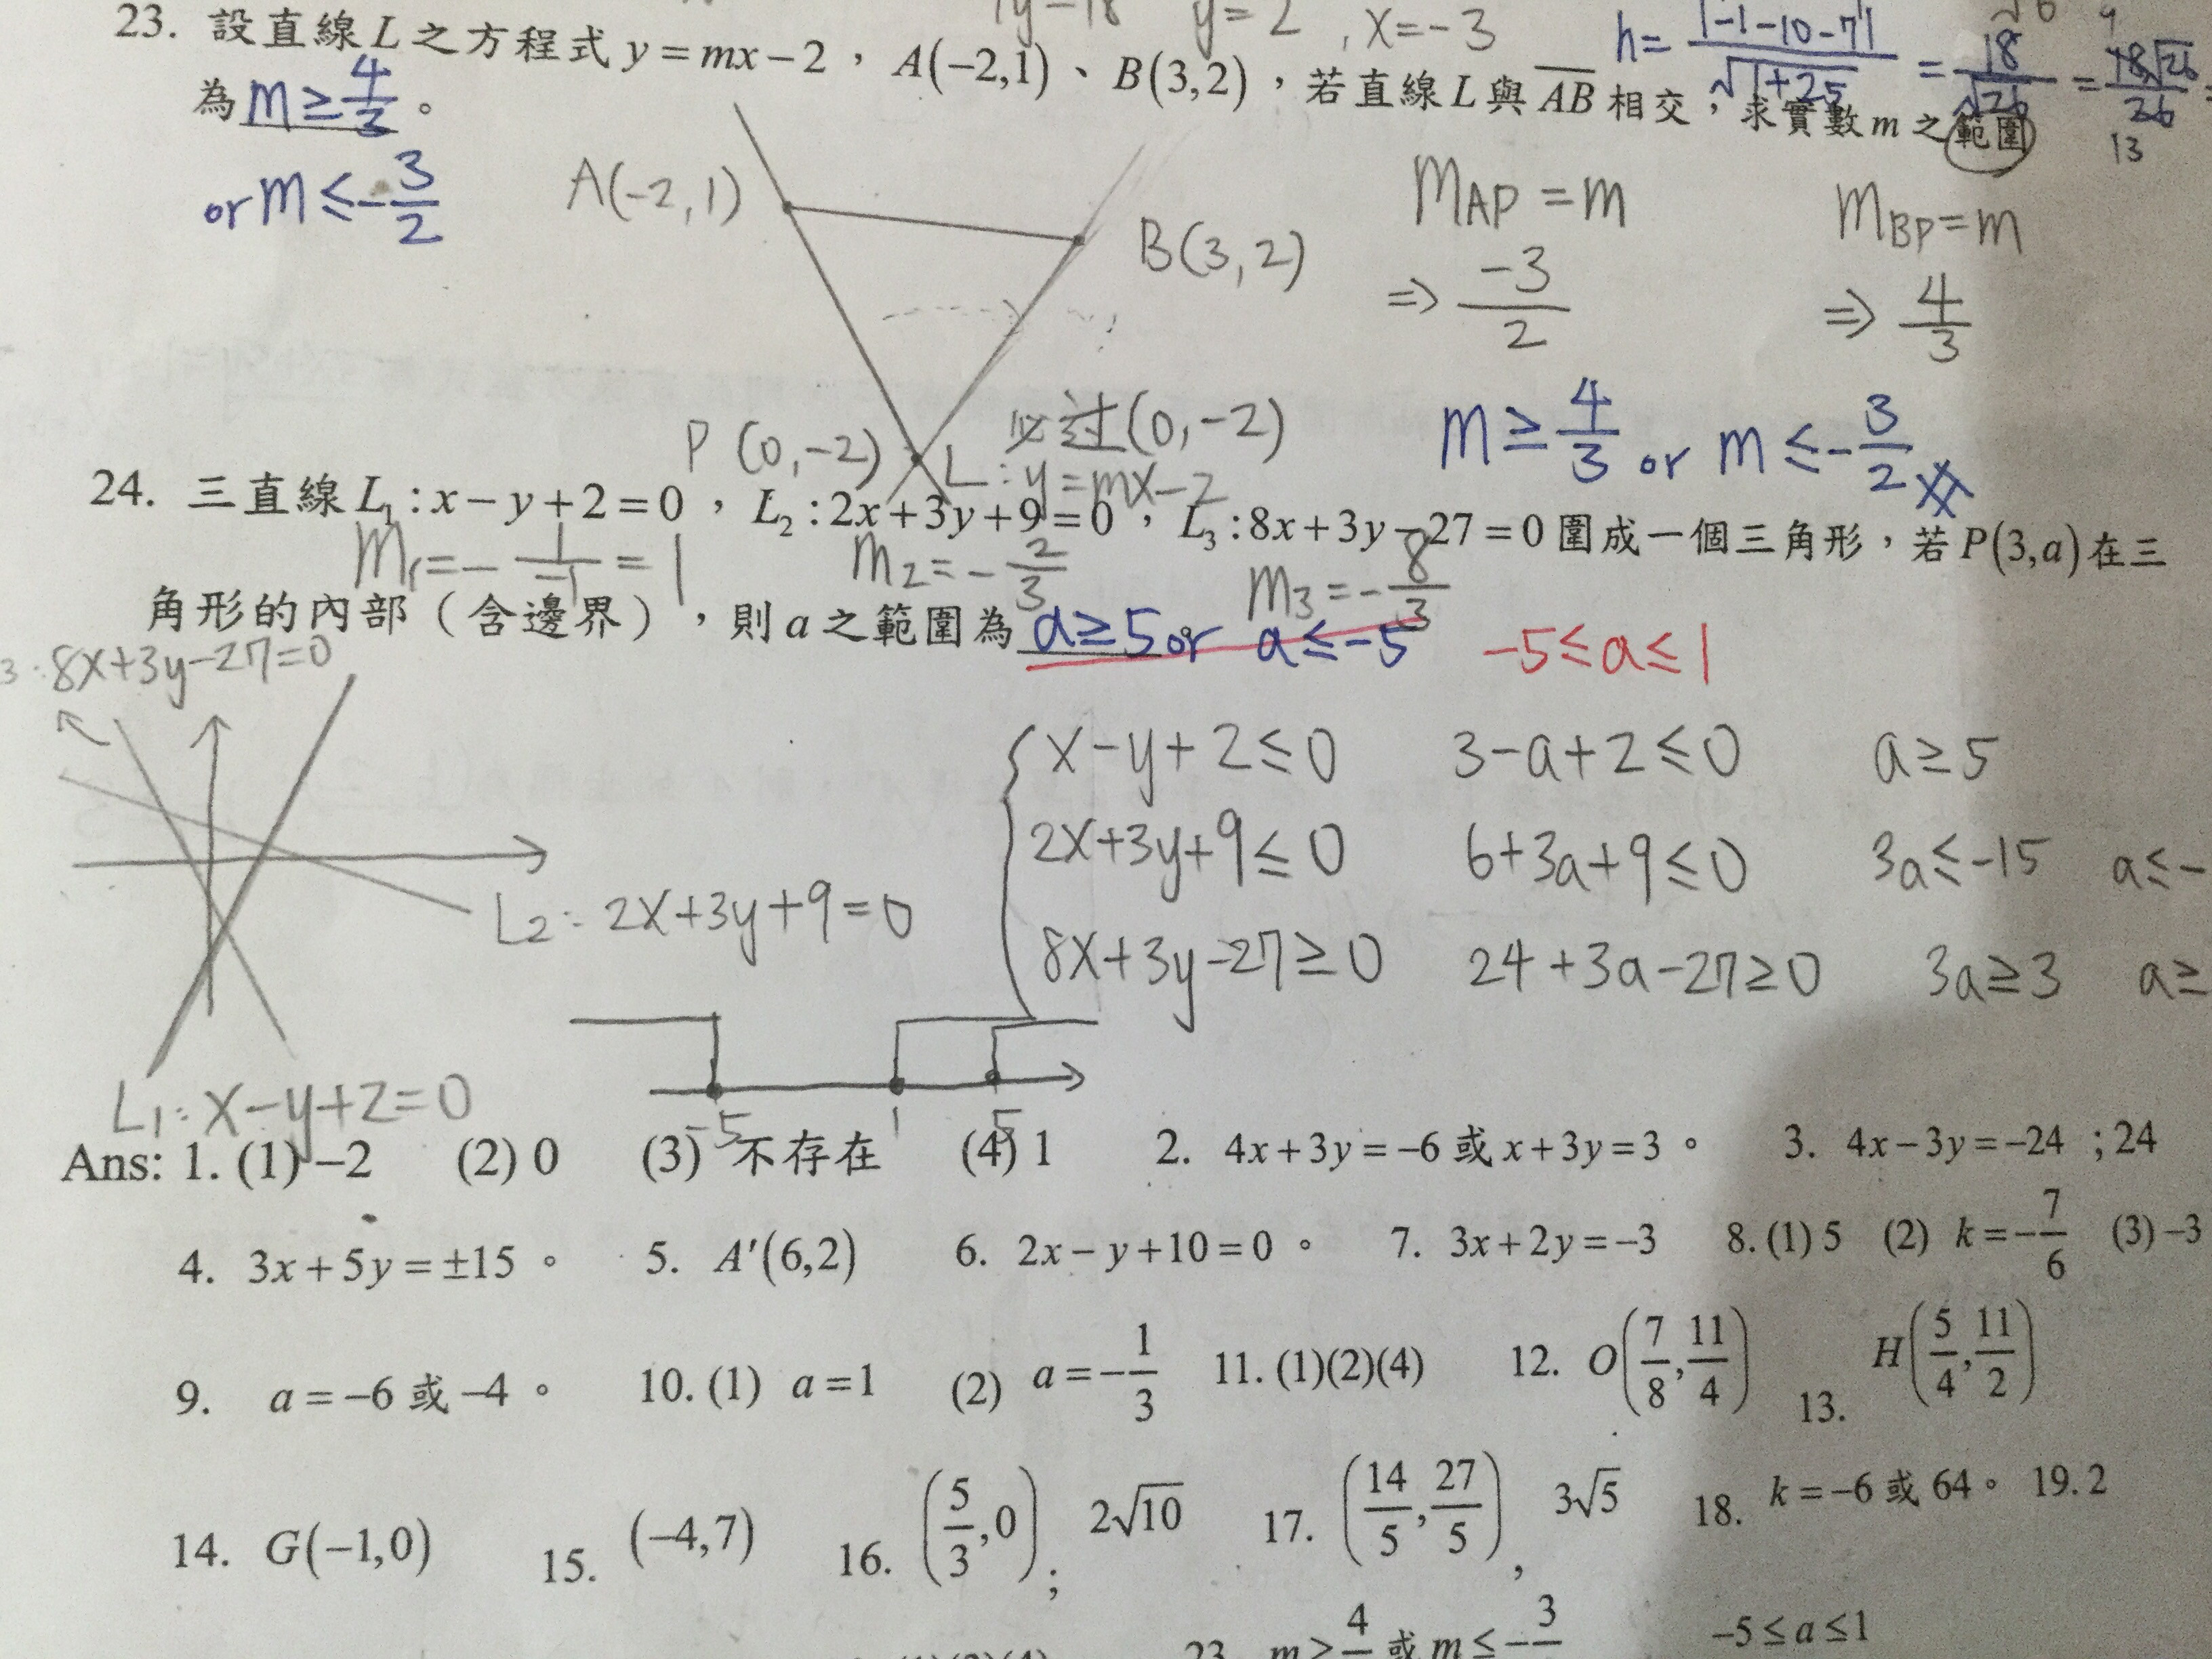 y = 2 , x = -3
h = |-1-10-7| / √(1+25) = 18/√26 = 18√26/26 =
13
23. 設直線 L 之方程式 y = mx − 2 ， A(−2,1) 、 B(3,2) ，若直線 L 與 AB 相交，求實數 m 之範圍
為 m ≥ 4/3 。
or m ≤ -3/2
A(-2,1)
B(3,2)
m_AP = m
⇒ -3/2
m_BP = m
⇒ 4/3
P (0,-2)
必过(0,-2)
L : y = mx - 2
m ≥ 4/3 or m ≤ -3/2
24. 三直線 L₁ : x − y + 2 = 0 ， L₂ : 2x + 3y + 9 = 0 ， L₃ : 8x + 3y − 27 = 0 圍成一個三角形，若 P(3,a) 在三
m₁ = - 1/-1 = 1
m₂ = - 2/3
m₃ = - 8/3
角形的內部（含邊界），則 a 之範圍為 a ≥ 5 or a ≤ -5 -5 ≤ a ≤ 1
3 : 8x+3y-27=0
L₂ : 2x+3y+9=0
L₁ : x-y+2=0
x-y+2 ≤ 0 3-a+2 ≤ 0 a ≥ 5
2x+3y+9 ≤ 0 6+3a+9 ≤ 0 3a ≤ -15 a ≤ -
8x+3y-27 ≥ 0 24+3a-27 ≥ 0 3a ≥ 3 a ≥
-5 1 5
Ans: 1. (1) −2 (2) 0 (3) 不存在 (4) 1 2. 4x + 3y = −6 或 x + 3y = 3 。 3. 4x − 3y = −24 ; 24
4. 3x + 5y = ±15 。 5. A′(6,2) 6. 2x − y + 10 = 0 。 7. 3x + 2y = −3 8. (1) 5 (2) k = −7/6 (3) −3
9. a = −6 或 −4 。 10. (1) a = 1 (2) a = −1/3 11. (1)(2)(4) 12. O(7/8, 11/4) 13. H(5/4, 11/2)
14. G(−1,0) 15. (−4,7) 16. (5/3, 0) ; 2√10 17. (14/5, 27/5) , 3√5 18. k = −6 或 64 。 19. 2
23. m ≥ 4/ 或 m ≤ −3/ −5 ≤ a ≤ 1